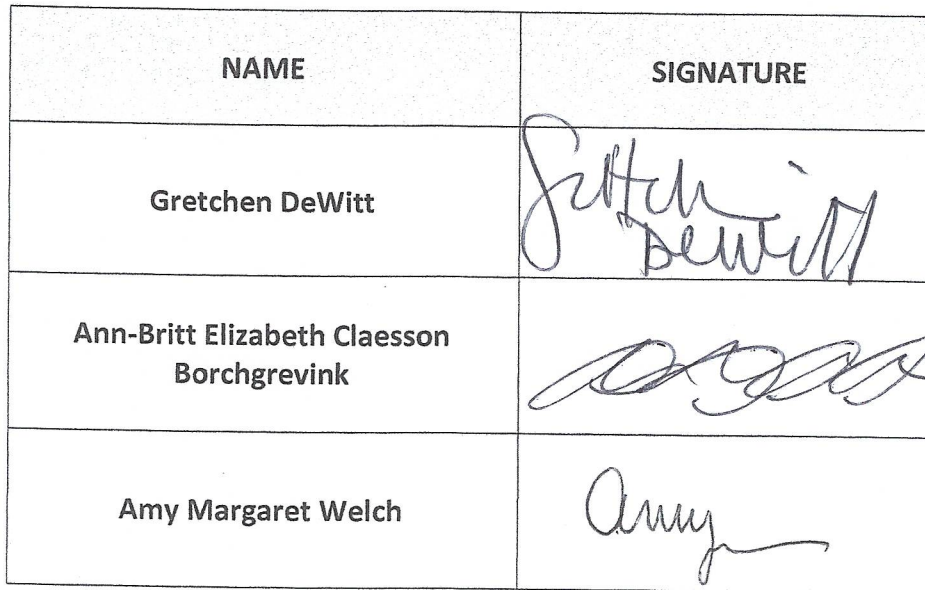 NAME
SIGNATURE
Gretchen DeWitt
Gretchen
DeWitt
Ann-Britt Elizabeth Claesson
Borchgrevink
Amy Margaret Welch
Amy